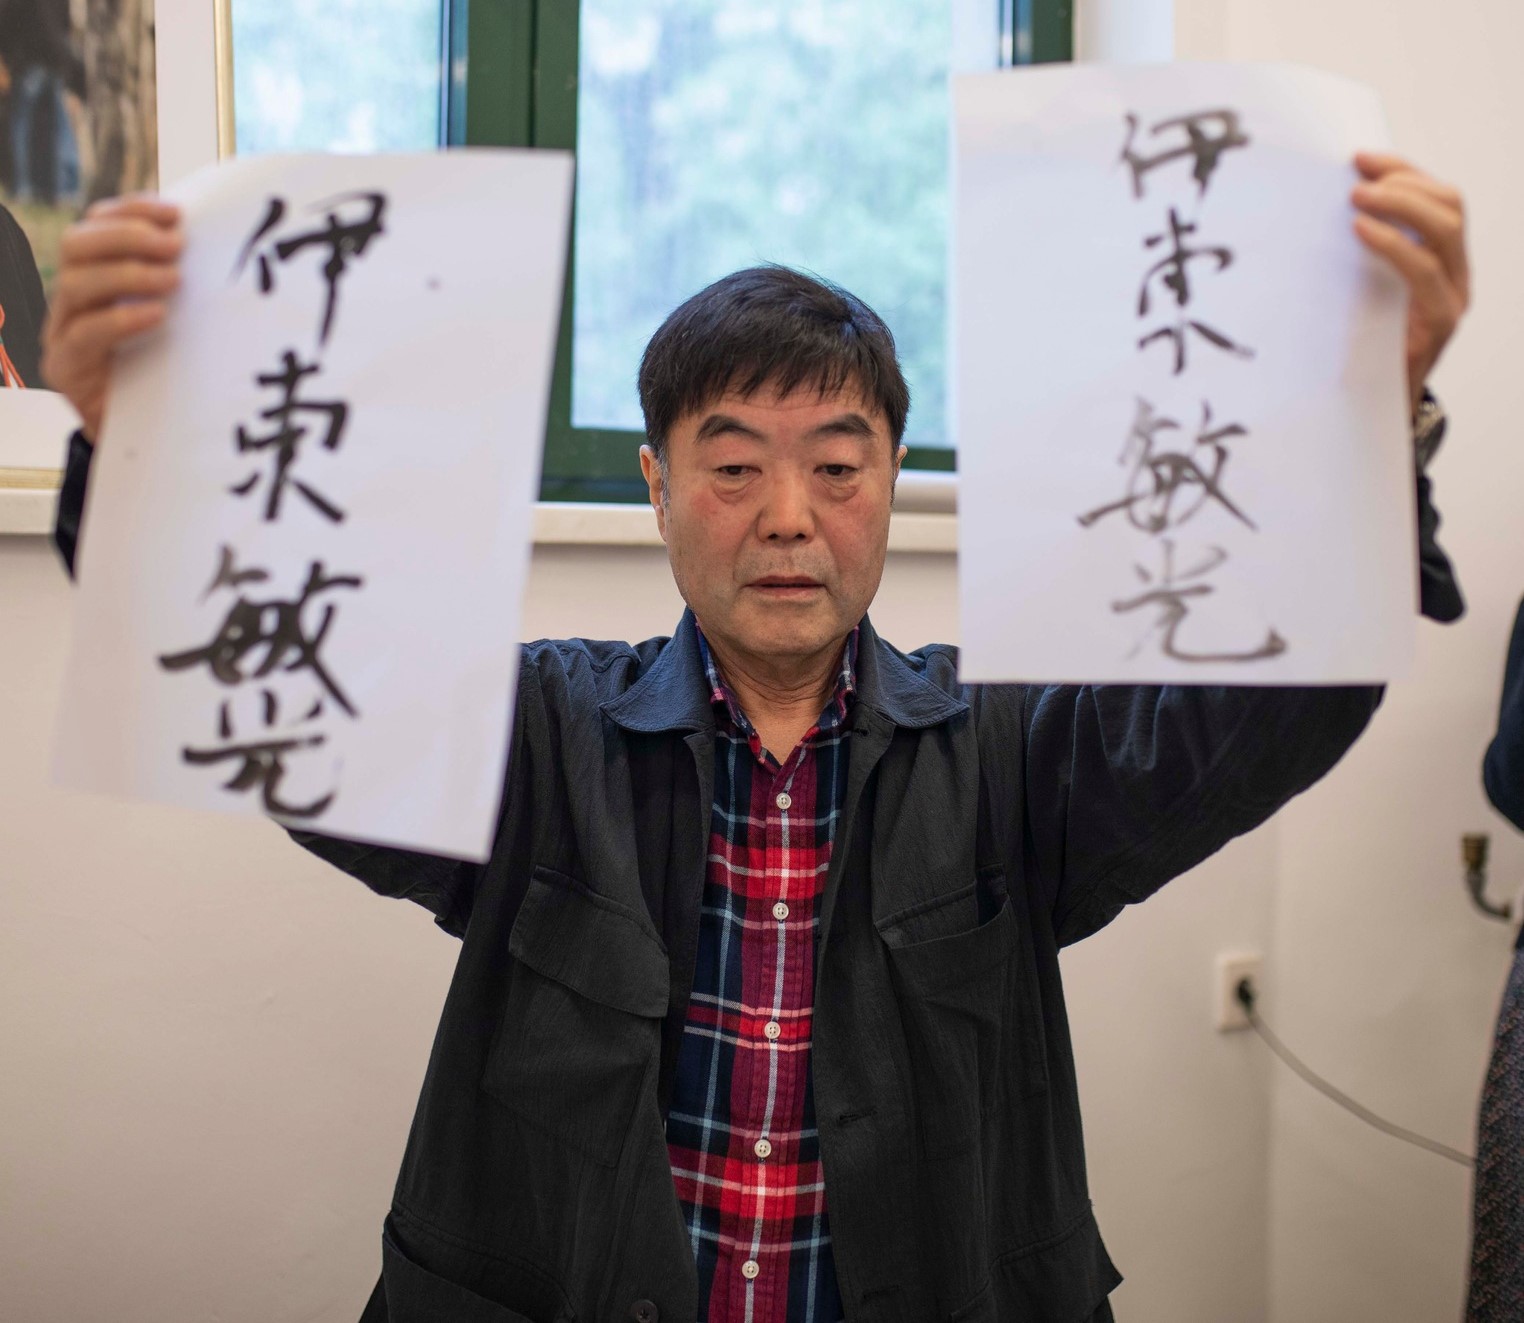 伊東敏光
伊東敏光